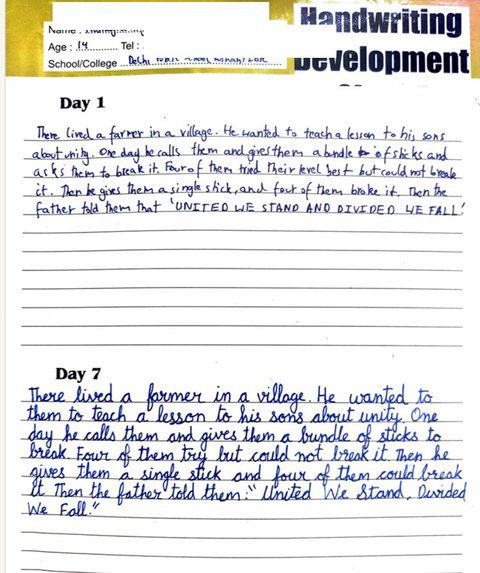 Handwriting
Development
Name :
Age : 14 Tel :
School/College Delhi
Day 1
There lived a farmer in a village. He wanted to teach a lesson to his sons
about unity. One day he calls them and gives them a bundle of sticks and
asks them to break it. Four of them tried Their level best but could not break
it. Then he gives them a single stick, and four of them broke it. Then the
father told them that 'UNITED WE STAND AND DIVIDED WE FALL'
Day 7
There lived a farmer in a village. He wanted to
them to teach a lesson to his sons about unity. One
day he calls them and gives them a bundle of sticks to
break. Four of them try but could not break it. Then he
gives them a single stick and four of them could break
it Then the father told them:" United We Stand, Divided
We Fall."